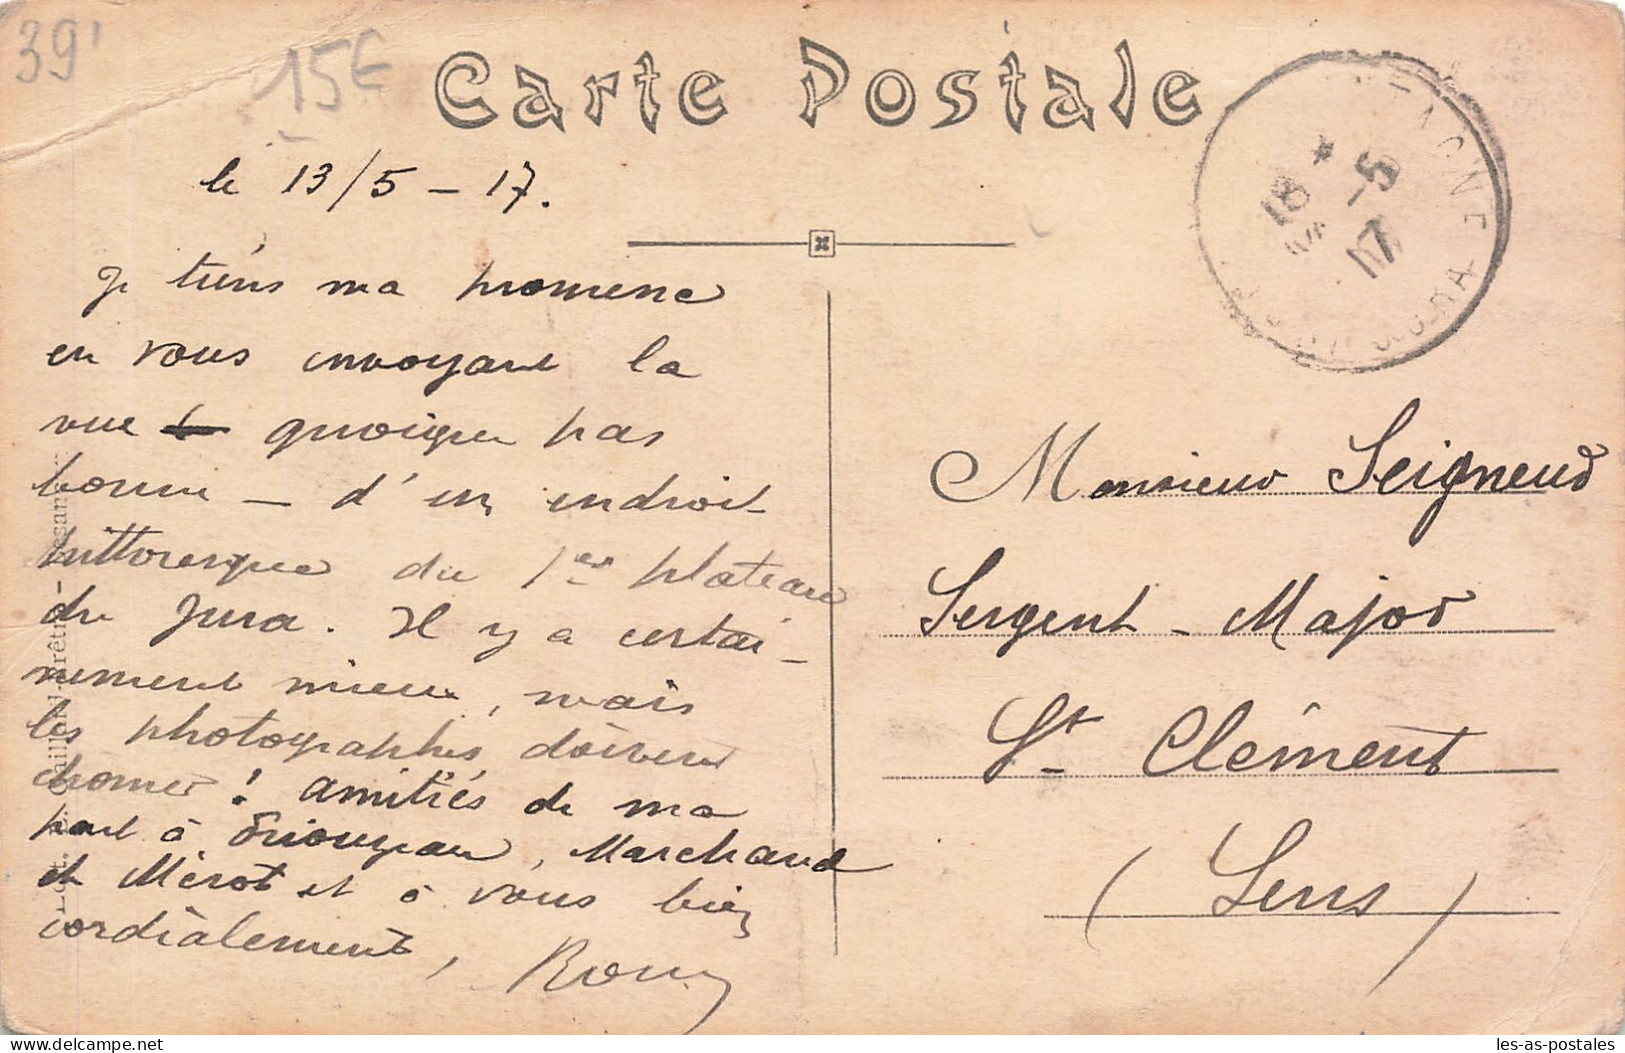 39'
15€
Carte Postale
le 13/5 - 17.
Je tiens ma promesse
en vous envoyant la
vue quoique pas
bonne - d'un endroit
pittoresque du 1er plateau
du Jura. Il y a certai-
nement mieux, mais
les photographes doivent
chomer ! Amitiés de ma
part à Marchand
et Mérot et à vous bien
cordialement,
Monsieur Seigneur
Sergent-Major
St Clément
(Sens)
18 * -5
17
JURA
delcampe.net
les-as-postales